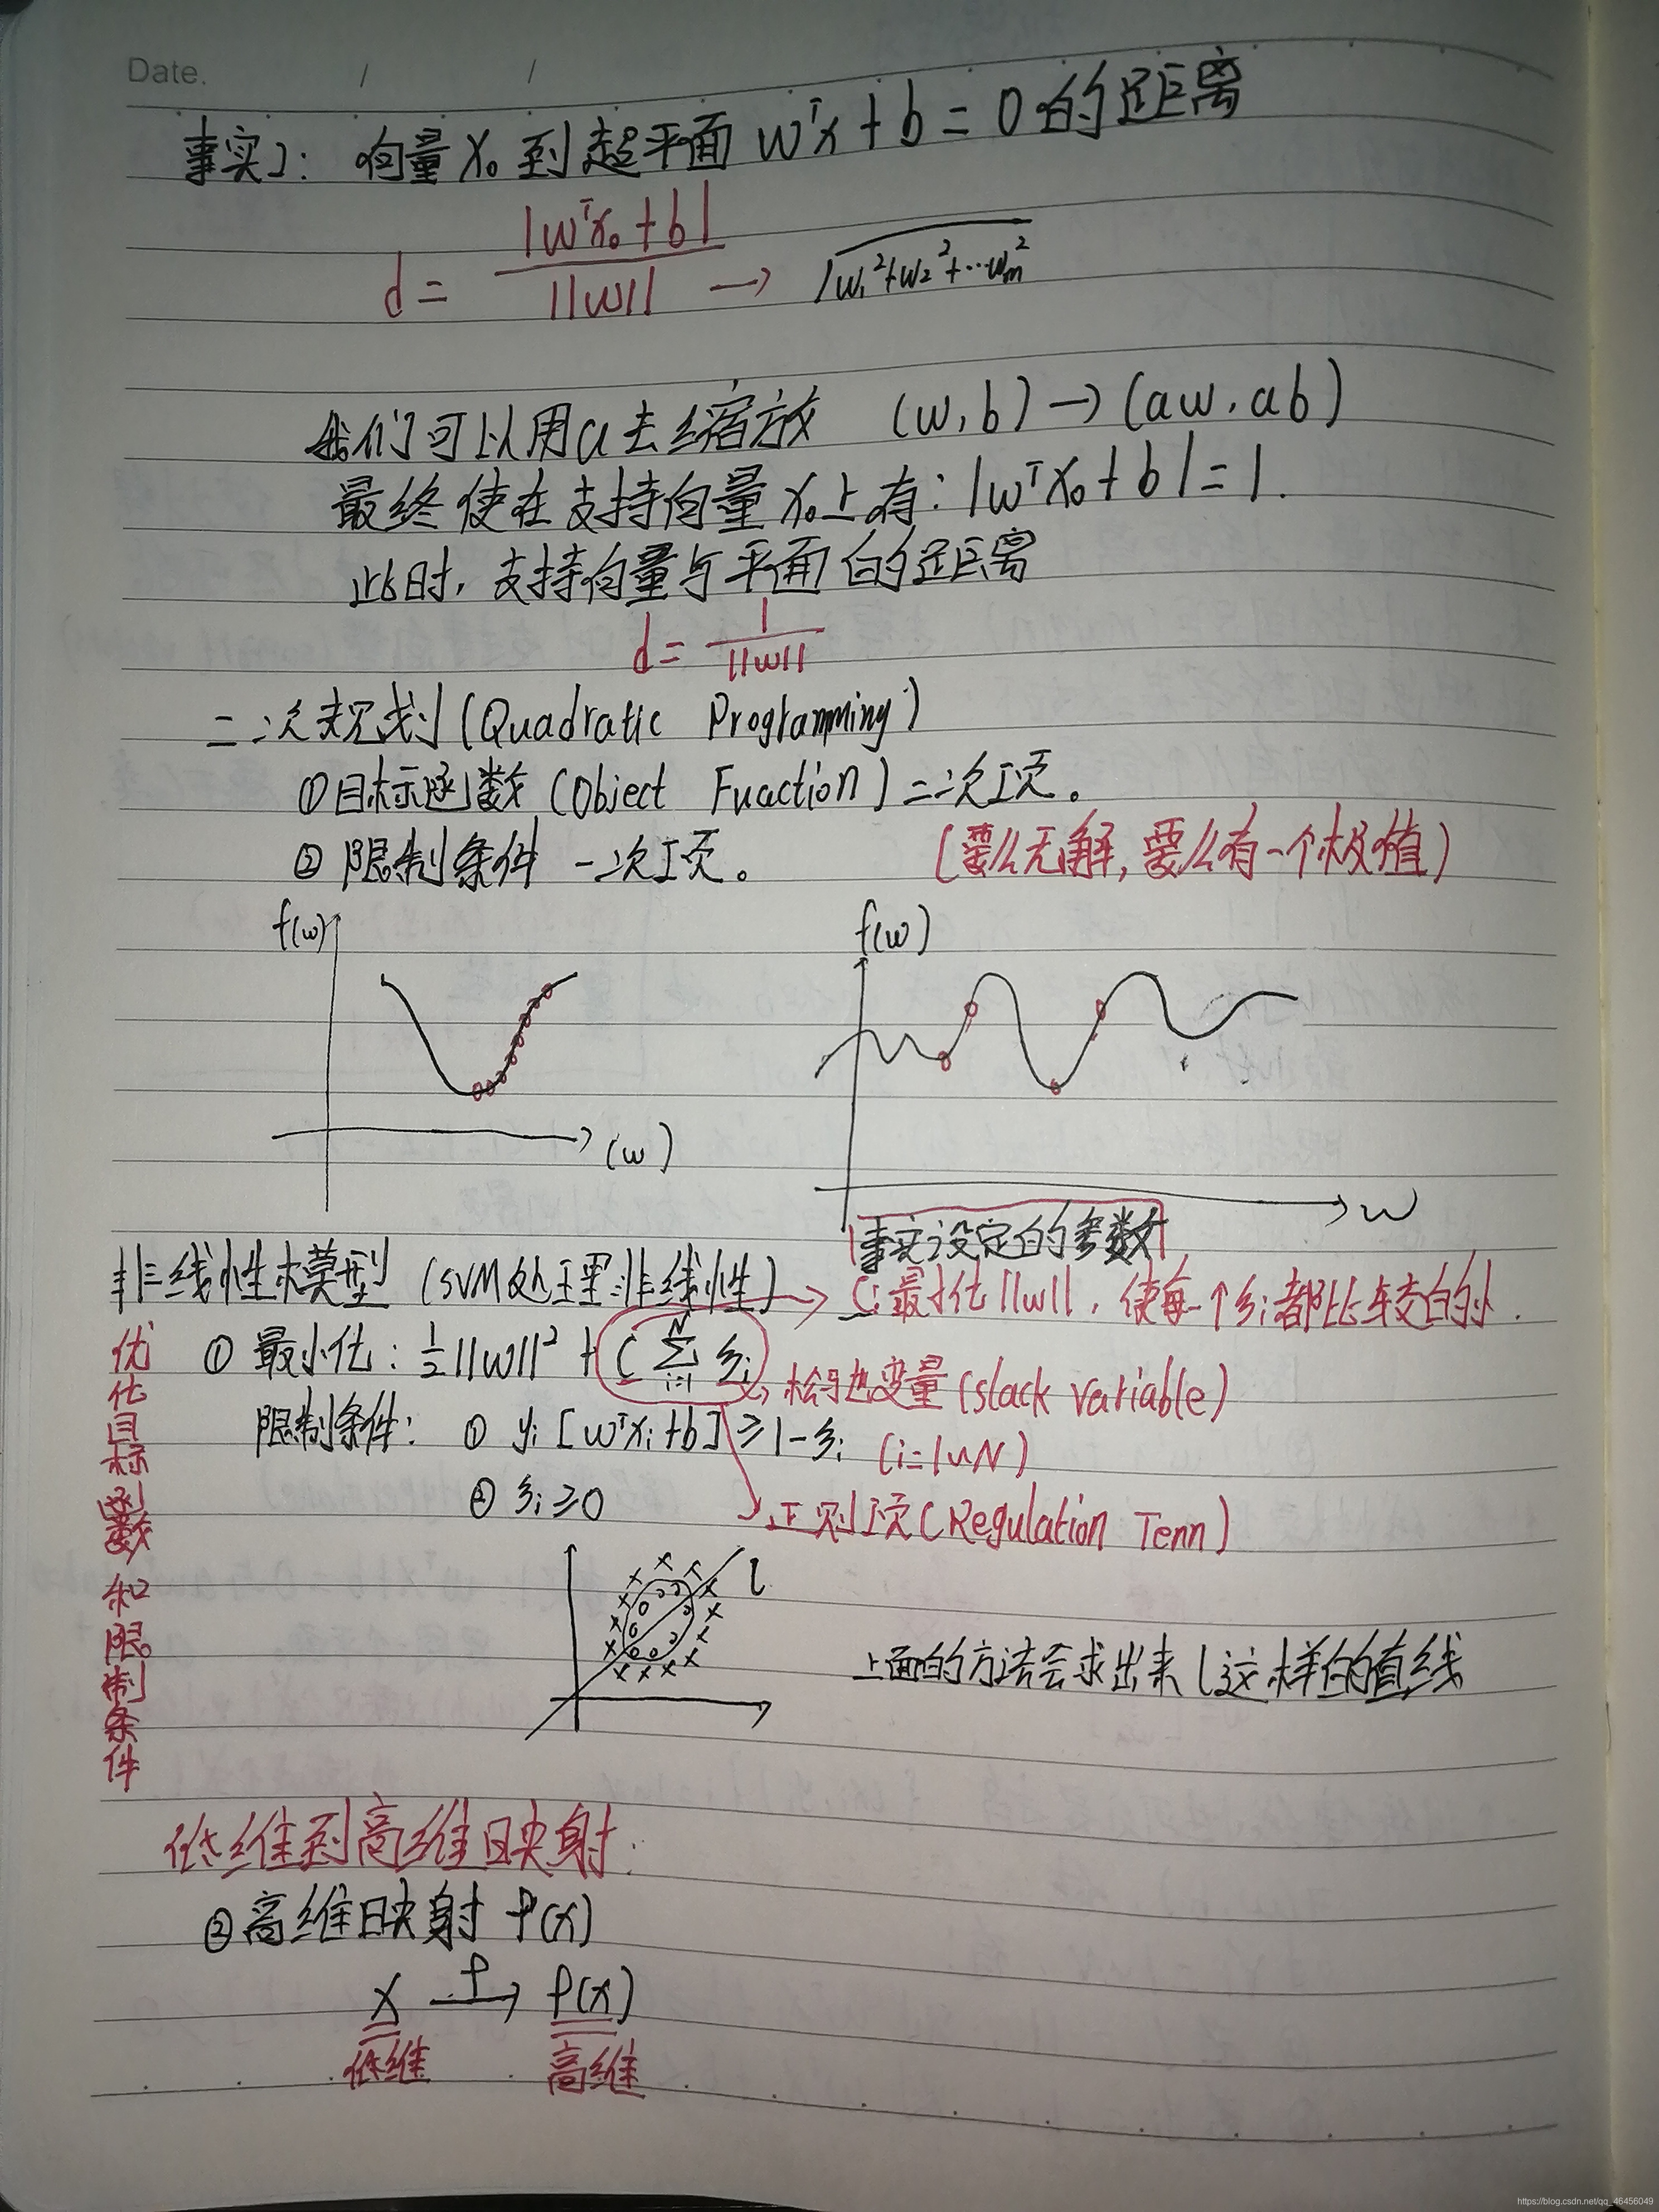 Date. / /
事实2: 向量X₀到超平面 wᵀx + b = 0 的距离
d = |wᵀx₀ + b| / ||w|| → √(w₁²+w₂²+…wₘ²)
我们可以用a去缩放 (w, b) → (aw, ab)
最终使在支持向量X₀上有: |wᵀx₀ + b| = 1.
此时, 支持向量与平面的距离
d = 1 / ||w||
二次规划 (Quadratic Programming)
①目标函数 (Object Fuaction) 二次项。
② 限制条件 一次项。 (要么无解, 要么有一个极值)
f(w) f(w)
(w) w
事实设定的参数
非线性模型 (SVM处理非线性) → C: 最小化||w||, 使每一个ξi都比较的小.
① 最小化: ½||w||² + C Σᵢ₌₁ᴺ ξi
→ 松弛变量 (slack variable)
限制条件: ① yi [wᵀxi + b] ≥ 1 - ξi (i=1~N)
② ξi ≥ 0
→ 正则项 (Regulation Tenn)
优化目标函数和限制条件
l
上面的方法会求出来l这样的直线
低维到高维映射:
②高维映射 φ(x)
x —φ→ φ(x)
低维 高维
https://blog.csdn.net/qq_46456049